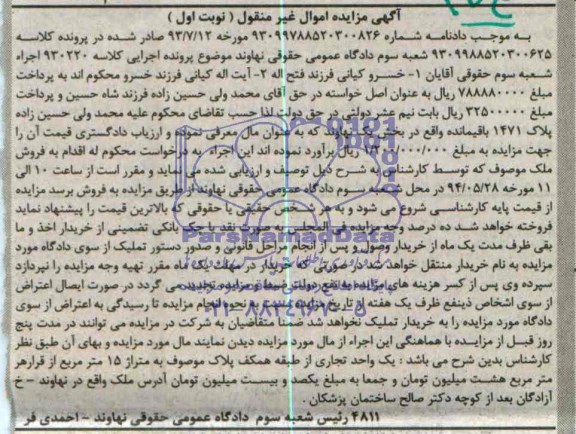 آگهی مزایده اموال غیر منقول ( نوبت اول )
به موجب دادنامه شماره ۹۳۰۹۹۷۸۸۵۲۰۳۰۰۸۲۶ مورخه ۹۳/۷/۱۲ صادر شده در پرونده کلاسه
۹۳۰۹۹۸۸۵۲۰۳۰۰۶۲۵ شعبه سوم دادگاه عمومی حقوقی نهاوند موضوع پرونده اجرایی کلاسه ۹۳۰۲۲۰ اجراء
شعبه سوم حقوقی آقایان ۱- خسرو کیانی فرزند فتح اله ۲- آیت اله کیانی فرزند خسرو محکوم اند به پرداخت
مبلغ ۷۸۸۸۸۰۰۰۰ ریال به عنوان اصل خواسته در حق آقای محمد ولی حسین زاده فرزند شاه حسین و پرداخت
مبلغ ۳۲۵۰۰۰۰۰ ریال بابت نیم عشر دولتی در حق دولت لذا حسب تقاضای محکوم علیه محمد ولی حسین زاده
پلاک ۱۴۷۱ باقیمانده واقع در بخش نهاوند که به عنوان مال معرفی نموده و ارزیاب دادگستری قیمت آن را
جهت مزایده به مبلغ ریال برآورد نموده اند این اجراء به درخواست محکوم له اقدام به فروش
ملک موصوف که توسط کارشناس به شرح ذیل توصیف و ارزیابی شده می نماید و مقرر است از ساعت ۱۰ الی
۱۱ مورخه ۹۴/۰۵/۲۸ در محل شعبه سوم دادگاه عمومی حقوقی نهاوند از طریق مزایده به فروش برسد مزایده
از قیمت پایه کارشناسی شروع می شود و به هر شخص حقیقی یا حقوقی که بالاترین قیمت را پیشنهاد نماید
فروخته خواهد شد ده درصد وجه مزایده فی المجلس به صورت نقد یا چک بانکی تضمینی از خریدار اخذ و ما
بقی ظرف مدت یک ماه از خریدار وصول و پس از انجام مراحل قانونی و صدور دستور تملیک از سوی دادگاه مورد
مزایده به نام خریدار منتقل خواهد شد در صورتی که خریدار در مهلت یک ماه مقرر تهیه وجه مزایده را نپردازد
سپرده وی پس از کسر هزینه های مزایده به نفع دولت ضبط و مزایده تجدید می گردد در صورت ایصال اعتراض
از سوی اشخاص ذینفع ظرف یک هفته از تاریخ مزایده نسبت به نحوه انجام مزایده تا رسیدگی به اعتراض از سوی
دادگاه مورد مزایده را به خریدار تملیک نخواهد شد ضمنا متقاضیان به شرکت در مزایده می توانند در مدت پنج
روز قبل از مزایده با هماهنگی این اجراء از مال مورد مزایده دیدن نمایند مال مورد مزایده و بهای آن طبق نظر
کارشناس بدین شرح می باشد : یک واحد تجاری از طبقه همکف پلاک موصوف به متراژ ۱۵ متر مربع از قرار هر
متر مربع هشت میلیون تومان و جمعا به مبلغ یکصد و بیست میلیون تومان آدرس ملک واقع در نهاوند - خ
آزادگان بعد از کوچه دکتر صالح ساختمان پزشکان .
۴۸۱۱ رئیس شعبه سوم دادگاه عمومی حقوقی نهاوند - احمدی فر
ParsNamadData
۰۲۱-۸۸۳۴۹۶۷۰-۵